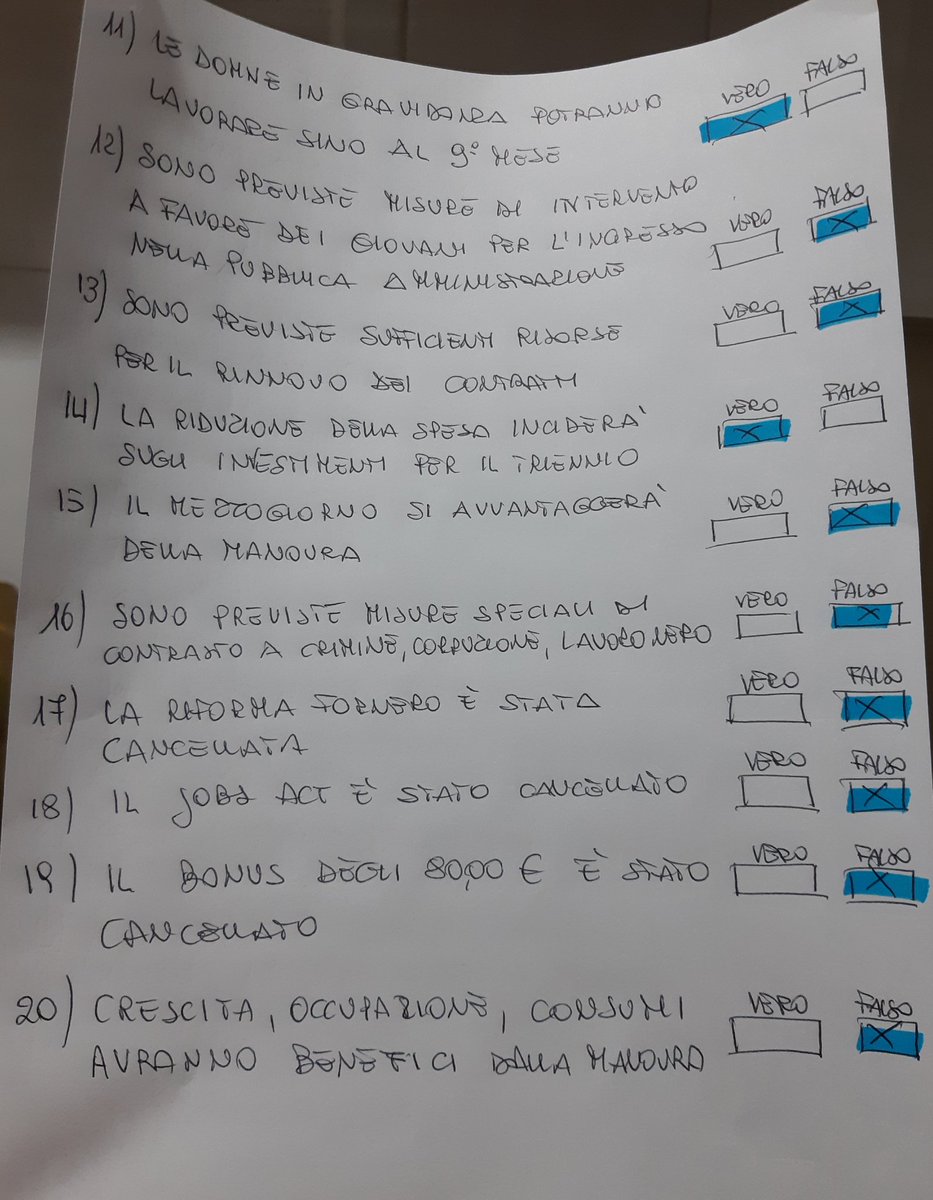 11) LE DONNE IN GRAVIDANZA POTRANNO
LAVORARE SINO AL 9° MESE
VERO FALSO
12) SONO PREVISTE MISURE DI INTERVENTO
A FAVORE DEI GIOVANI PER L'INGRESSO
NELLA PUBBLICA AMMINISTRAZIONE
VERO FALSO
13) SONO PREVISTE SUFFICIENTI RISORSE
PER IL RINNOVO DEI CONTRATTI
VERO FALSO
14) LA RIDUZIONE DELLA SPESA INCIDERA'
SUGLI INVESTIMENTI PER IL TRIENNIO
VERO FALSO
15) IL MEZZOGIORNO SI AVVANTAGGERA'
DELLA MANOVRA
VERO FALSO
16) SONO PREVISTE MISURE SPECIALI DI
CONTRASTO A CRIMINE, CORRUZIONE, LAVORO NERO
VERO FALSO
17) LA RIFORMA FORNERO È STATA
CANCELLATA
VERO FALSO
18) IL JOBS ACT È STATO CANCELLATO
VERO FALSO
19) IL BONUS DEGLI 80,00 € È STATO
CANCELLATO
VERO FALSO
20) CRESCITA, OCCUPAZIONE, CONSUMI
AVRANNO BENEFICI DALLA MANOVRA
VERO FALSO